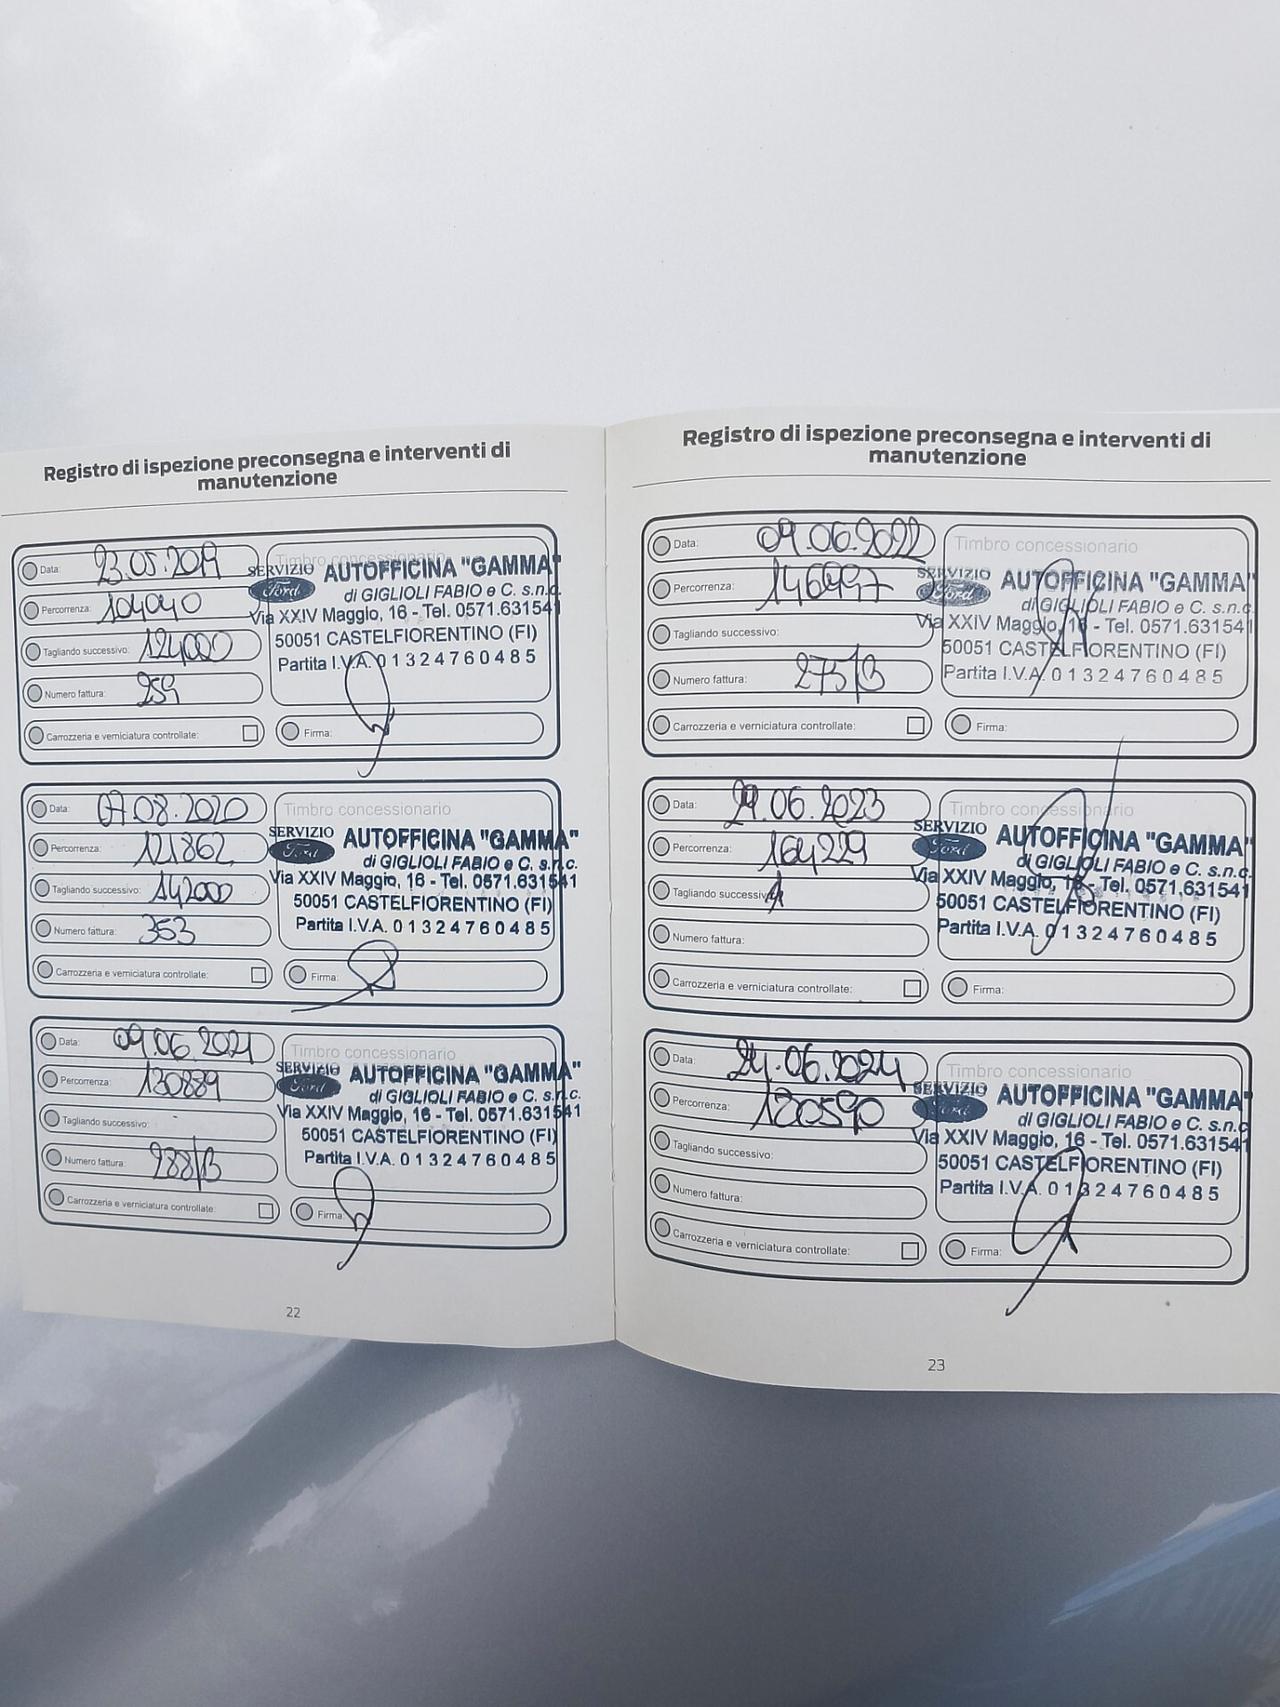 Registro di ispezione preconsegna e interventi di
manutenzione
Data: 23.05.2019
Percorrenza: 104040
Tagliando successivo: 124000
Numero fattura: 259
Carrozzeria e verniciatura controllate:
Timbro concessionario
SERVIZIO AUTOFFICINA "GAMMA"
Ford di GIGLIOLI FABIO e C. s.n.c.
Via XXIV Maggio, 16 - Tel. 0571.631541
50051 CASTELFIORENTINO (FI)
Partita I.V.A. 01324760485
Firma:
Data: 07.08.2020
Percorrenza: 121862
Tagliando successivo: 142000
Numero fattura: 353
Carrozzeria e verniciatura controllate:
Timbro concessionario
SERVIZIO AUTOFFICINA "GAMMA"
Ford di GIGLIOLI FABIO e C. s.n.c.
Via XXIV Maggio, 16 - Tel. 0571.631541
50051 CASTELFIORENTINO (FI)
Partita I.V.A. 01324760485
Firma:
Data: 09.06.2021
Percorrenza: 130889
Tagliando successivo:
Numero fattura: 288/B
Carrozzeria e verniciatura controllate:
Timbro concessionario
SERVIZIO AUTOFFICINA "GAMMA"
Ford di GIGLIOLI FABIO e C. s.n.c.
Via XXIV Maggio, 16 - Tel. 0571.631541
50051 CASTELFIORENTINO (FI)
Partita I.V.A. 01324760485
Firma:
22
Registro di ispezione preconsegna e interventi di
manutenzione
Data: 09.06.2022
Percorrenza: 146997
Tagliando successivo:
Numero fattura: 275/B
Carrozzeria e verniciatura controllate:
Timbro concessionario
SERVIZIO AUTOFFICINA "GAMMA"
Ford di GIGLIOLI FABIO e C. s.n.c.
Via XXIV Maggio, 16 - Tel. 0571.631541
50051 CASTELFIORENTINO (FI)
Partita I.V.A. 01324760485
Firma:
Data: 29.06.2023
Percorrenza: 164229
Tagliando successivo:
Numero fattura:
Carrozzeria e verniciatura controllate:
Timbro concessionario
SERVIZIO AUTOFFICINA "GAMMA"
Ford di GIGLIOLI FABIO e C. s.n.c.
Via XXIV Maggio, 16 - Tel. 0571.631541
50051 CASTELFIORENTINO (FI)
Partita I.V.A. 01324760485
Firma:
Data: 24.06.2024
Percorrenza:
Tagliando successivo:
Numero fattura:
Carrozzeria e verniciatura controllate:
Timbro concessionario
SERVIZIO AUTOFFICINA "GAMMA"
Ford di GIGLIOLI FABIO e C. s.n.c.
Via XXIV Maggio, 16 - Tel. 0571.631541
50051 CASTELFIORENTINO (FI)
Partita I.V.A. 01324760485
Firma:
23